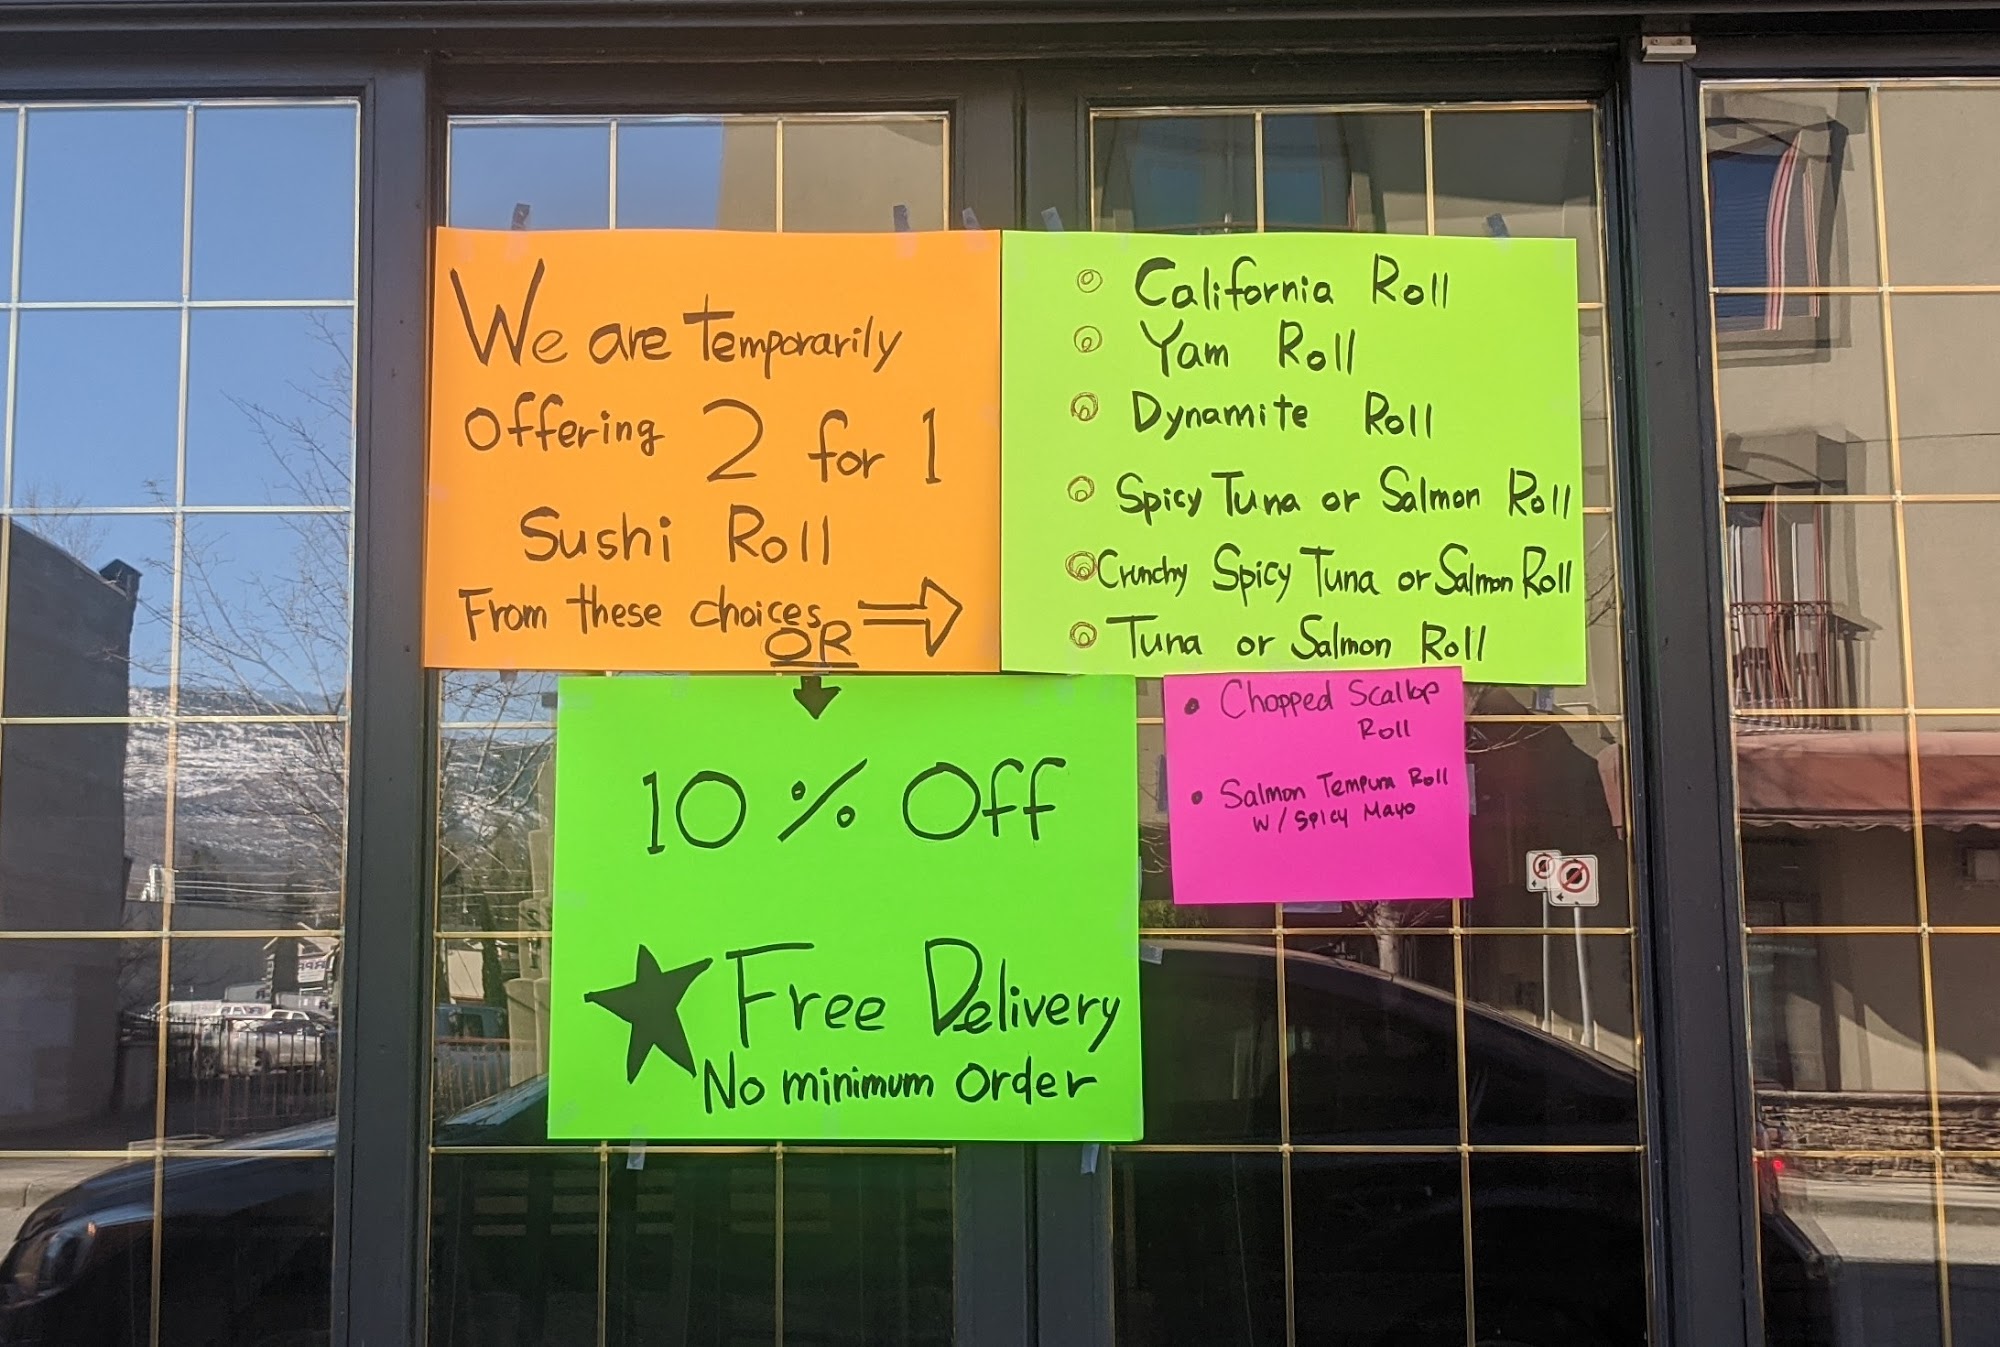 We are Temporarily
Offering 2 for 1
Sushi Roll
From these choices
OR
California Roll
Yam Roll
Dynamite Roll
Spicy Tuna or Salmon Roll
Crunchy Spicy Tuna or Salmon Roll
Tuna or Salmon Roll
Chopped Scallop
Roll
Salmon Tempura Roll
W/ Spicy Mayo
10 % Off
Free Delivery
No minimum Order